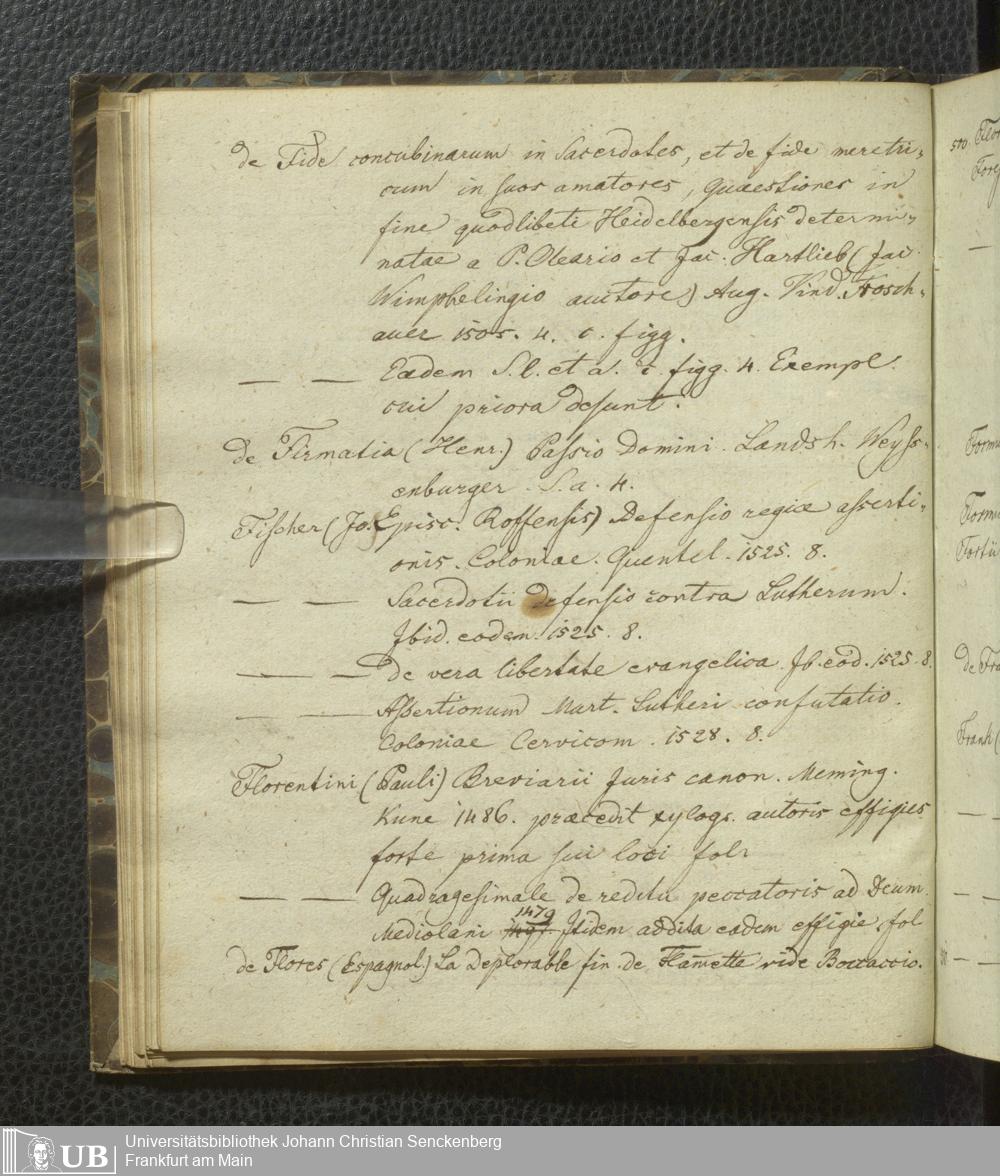 de Fide concubinarum in Sacerdotes, et de fide meretri-
cum in suos amatores, quaestiones in
fine quodlibeti Heidelbergensis determi-
natae a P. Oleario et Jac. Hartlieb (Jac.
Wimphelingio auctore) Aug. Vind. Frosch-
auer 1505. 4. c. figg.
— — Eaedem S. l. et a. c. figg. 4. Exempl.
cui priora desunt.
de Firmatia (Henr.) Passio Domini. Landsh. Weyss-
enburger. S. a. 4.
Fischer (Jo. Episc. Roffensis) Defensio regiae asserti-
onis. Coloniae. Quentel. 1525. 8.
— — Sacerdotii defensio contra Lutherum.
Ibid. eodem. 1525. 8.
— — De vera libertate evangelica. Ib. eod. 1525. 8.
— — Assertionum Mart. Lutheri confutatio.
Coloniae Cervicorn. 1528. 8.
Florentini (Pauli) Breviarii Juris canon. Meming.
Kune 1486. praecedit xylogr. autoris effigies
forte prima sui loci fol.
— — Quadragesimale de reditu peccatoris ad Deum.
Mediolani 1479 Itidem addita eadem effigie. fol
de Flores (Espagnol.) La Deplorable fin de Flamette vide Boccaccio.
570.
Form
Fortü
de Fra
Frank (
UB
Universitätsbibliothek Johann Christian Senckenberg
Frankfurt am Main